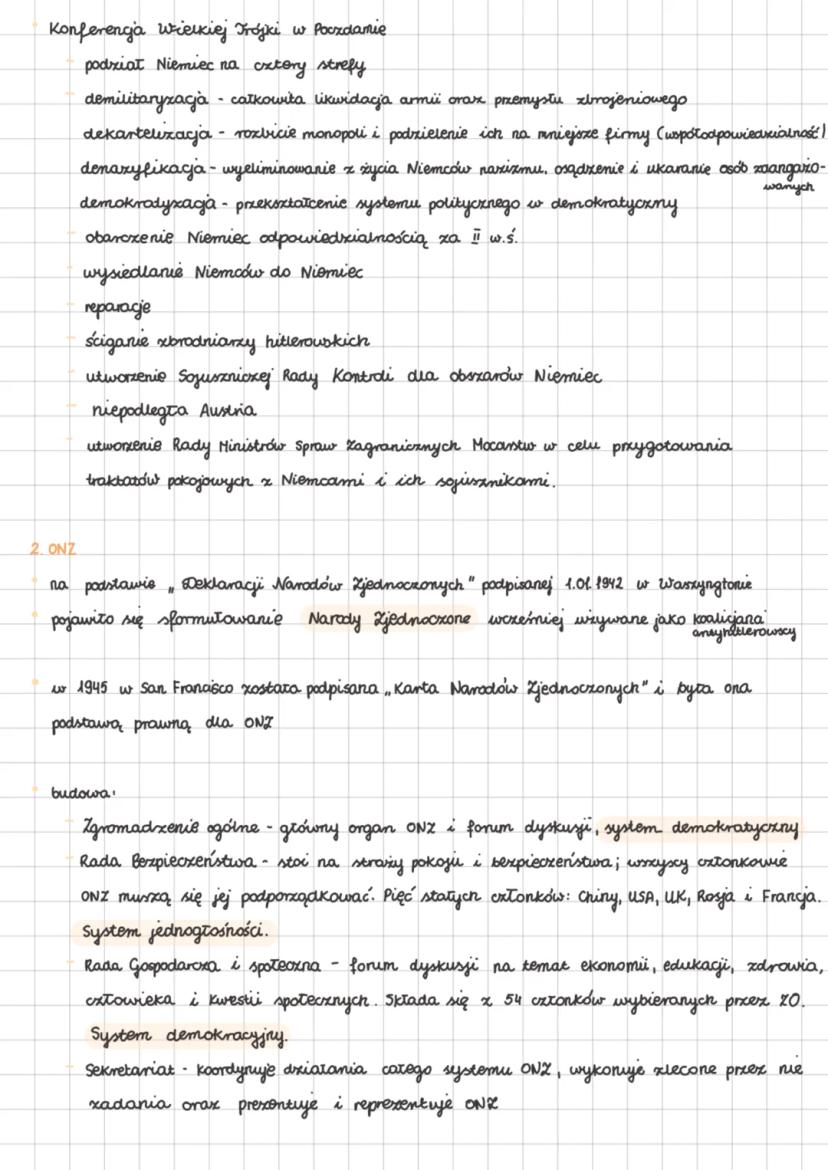 Konferencja Wielkiej Trójki w Poczdamie
- podział Niemiec na cztery strefy
- demilitaryzacja - całkowita likwidacja armii oraz przemysłu zbrojeniowego
dekartelizacja - rozbicie monopoli i podzielenie ich na mniejsze firmy (współodpowiedzialność)
denazyfikacja - wyeliminowanie z życia Niemców nazizmu, osądzenie i ukaranie osób zaangażo-
wanych
demokratyzacja - przekształcenie systemu politycznego w demokratyczny
- obarczenie Niemiec odpowiedzialnością za II w.ś.
- wysiedlanie Niemców do Niemiec
- reparacje
- ściganie zbrodniarzy hitlerowskich
- utworzenie Sojuszniczej Rady Kontroli dla obszarów Niemiec
- niepodległa Austria
- utworzenie Rady Ministrów Spraw Zagranicznych Mocarstw w celu przygotowania
traktatów pokojowych z Niemcami i ich sojusznikami.
2. ONZ
na podstawie „Deklaracji Narodów Zjednoczonych" podpisanej 1.01.1942 w Waszyngtonie
pojawiło się sformułowanie Narody Zjednoczone wcześniej używane jako koalicjana
antyhitlerowscy
w 1945 w San Francisco została podpisana „Karta Narodów Zjednoczonych" i była ona
podstawą prawną dla ONZ
budowa:
- Zgromadzenie ogólne - główny organ ONZ i forum dyskusji, system demokratyczny
- Rada Bezpieczeństwa - stoi na straży pokoju i bezpieczeństwa; wszyscy członkowie
ONZ muszą się jej podporządkować. Pięć stałych członków: Chiny, USA, UK, Rosja i Francja.
System jednogłośności.
- Rada Gospodarcza i społeczna - forum dyskusji na temat ekonomii, edukacji, zdrowia,
człowieka i kwestii społecznych. Składa się z 54 członków wybieranych przez ZO.
System demokracyjny.
- Sekretariat - koordynuje działania całego systemu ONZ, wykonuje zlecone przez nie
zadania oraz prezentuje i reprezentuje ONZ